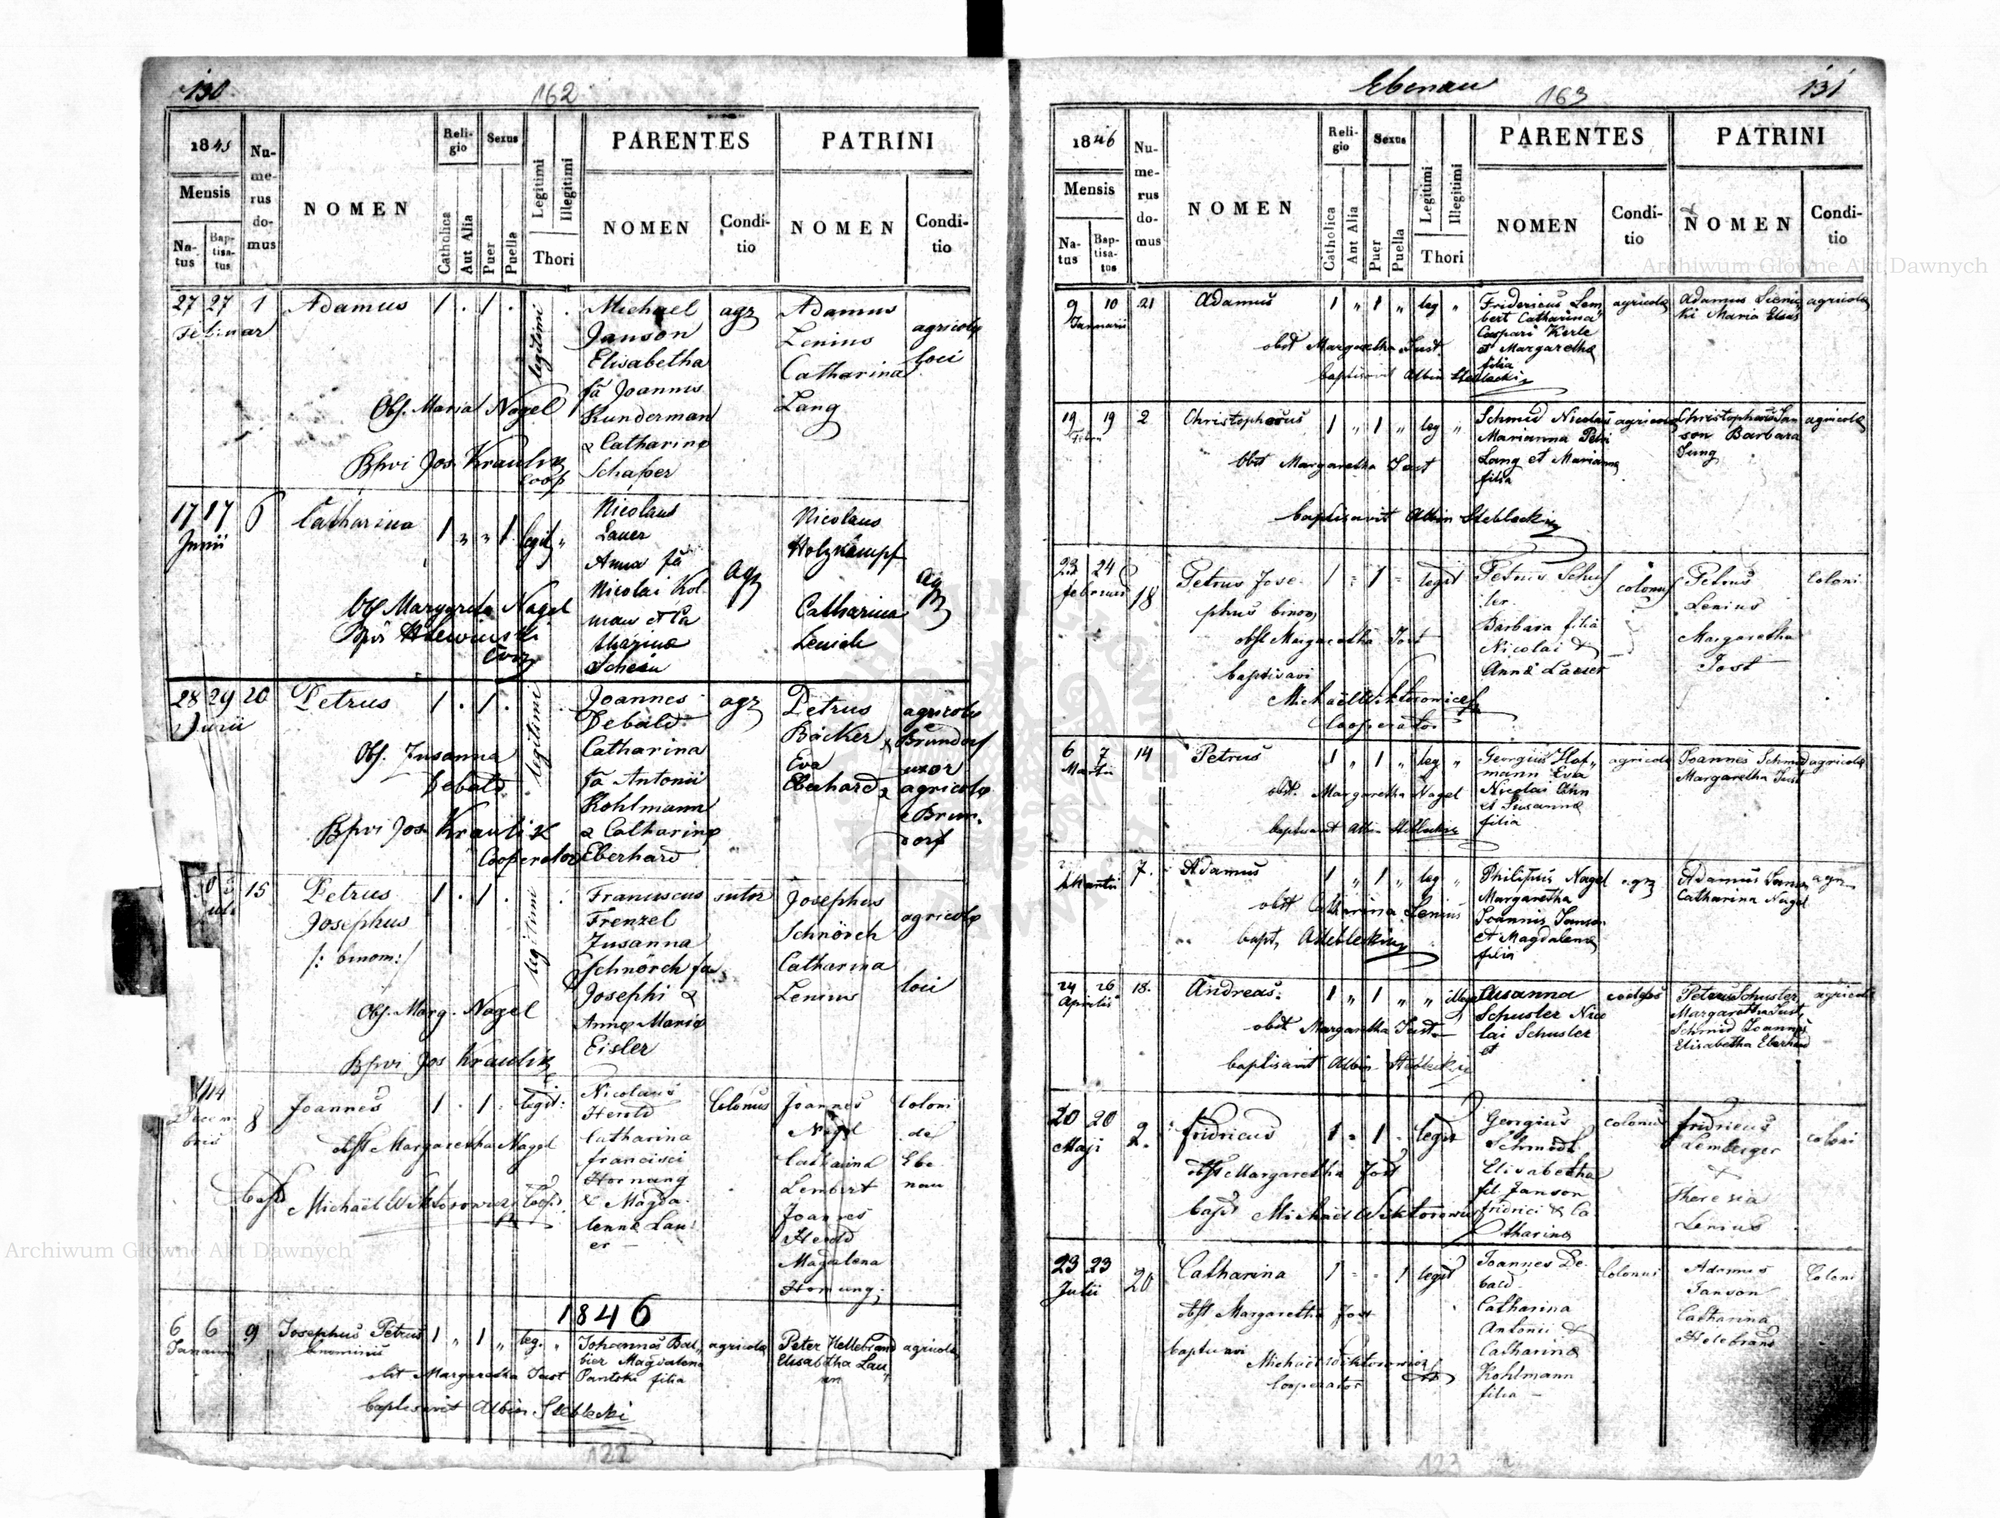 130
162
1845
Mensis
Na-
tus
Bap-
tisa-
tus
Nu-
me-
rus
do-
mus
NOMEN
Reli-
gio
Catholica
Aut Alia
Sexus
Puer
Puella
Legitimi
Illegitimi
Thori
PARENTES
NOMEN
Condi-
tio
PATRINI
NOMEN
Condi-
tio
27 27 1 Adamus 1 . 1 . legitimi
Februar
Obs. Maria Nagel
Bpvi Jos Kraulik
Coop
Michael
Janson
Elisabetha
fa Joannis
Kunderman
& Catharina
Schaper
agr
Adamus
Lenius
Catharina
Lang
agricola
loci
17 17 6 Catharina 1 " " 1 legit "
Junii
Obs Margareta Nagel
Nicolaus
Lauer
Anna fa
Nicolai Kol
man et Ca
tharina
Schein
agr
Nicolaus
Holzkämpf
Catharina
Lenich
agr
28 29 20 Petrus 1 . 1 . legitimi
Junii
Obs. Susanna
Debald
Bpvi Jos Kraulik
Cooperator
Joannes
Debald
Catharina
fa Antonii
Kohlmann
& Catharina
Eberhard
agr
Petrus
Bäcker &
Eva
Eberhard
agricola
Brundorf
uxor
agricola
e Brun-
dorf
15 Petrus 1 . 1 . legitimi
Josephus
/: binom:/
Obs. Marg. Nagel
Bpvi Jos Kraulik
Franciscus
Frenzel
Susanna
Schnörch fa
Josephi &
Anna Maria
Eisler
sutor
Josephus
Schnörch
Catharina
Lenius
agricola
loci
14
Decem
bris
8
Joannes 1 . 1 . legit:
obst Margaretha Nagel
bapt Michaël Wiktorowicz Coop.
Nicolaus
Herold
Catharina
francisci
Hornung
& Magda-
lenna Lau-
er
Colonus
Joannes
Nagel
Catharina
Lembert
Joannes
Herold
Magdalena
Hornung;
coloni
de
Ebe-
nau
1846
6 6 9 Josephus Petrus 1 " 1 " leg. "
Januarii binominis
obst Margaretha Just
baptisavit Albin Steblecki
Johannes Bal-
bier Magdalena
Pantski filia
agricola
Peter Hellebrand
Elisabetha Lau-
agricola
122
Ebenau
163
131
1846
Mensis
Na-
tus
Bap-
tisa-
tus
Nu-
me-
rus
do-
mus
NOMEN
Reli-
gio
Catholica
Aut Alia
Sexus
Puer
Puella
Legitimi
Illegitimi
Thori
PARENTES
NOMEN
Condi-
tio
PATRINI
NOMEN
Condi-
tio
9 10 21 Adamus 1 " 1 " leg "
Januarii
obst Margaretha Just
baptisavit Albin Steblecki
Fridericus Lem
bert Catharina
Caspari Kerle
et Margaretha
filia
agricola
Adamus
ki Maria
agricola
19 19 2 Christophorus 1 " 1 " leg "
obst Margaretha Jost
baptisavit Albin Steblecki
Schmid Nicolaus
Marianna Petri
Lang et Marianna
filia
agricola
Christophorus Jan
son Barbara
Jung
agricola
23 24 18 Petrus Jose- 1 - 1 - legit
februarii
phus binom
obst Margaretha Jost
baptisavi
Michaël Wiktorowicz
Cooperator
Petrus Schus
ter
Barbara filia
Nicolai &
Anna Lauer
colonus
Petrus
Lenius
Margaretha
Jost
coloni
6 7 14 Petrus 1 " 1 " leg "
Martii
obst. Margaretha Nagel
baptisavit Albin Steblecki
Georgius Hof-
mann Eva
Nicolai
et Susanna
filia
agricola
Joannes Schmid
Margaretha Just
agricola
Martii
7. Adamus 1 " 1 " leg "
obst Catharina Lenius
bapt, A Steblecki
Philipus Nagel
Margaretha
Joannis Janson
et Magdalena
filia
agr
Adamus Janson
Catharina Nagel
agr
24 26 18. Andreas. 1 " 1 " " illeg
Aprilis
obst Margaretha Just
baptisavit Albin Steblecki
Susanna
Schuster Nico
lai Schuster
et
Petrus Schuster
Margaretha Just,
Schmid Joannes
Elisabetha Eberhard
agricola
20 20 2. fridricus 1 - 1 - legit
Maji
obst Margaretha Jost
bapt Michaël Wiktorowicz
Georgius
Schmidt
Elisabetha
fil Janson
fridrici & Ca
tharina
colonus
fridricus
Lemberger
&
Theresia
Lenius
coloni
23 23 20 Catharina 1 - - 1 legit
Julii
obst Margaretha Jost
baptisavi
Michaël Wiktorowicz
Cooperator
Joannes De-
bald
Catharina
Antonii &
Catharina
Kohlmann
filia
Colonus
Adamus
Janson
Catharina
Helebrand
Coloni
123
Archiwum Główne Akt Dawnych
Archiwum Główne Akt Dawnych